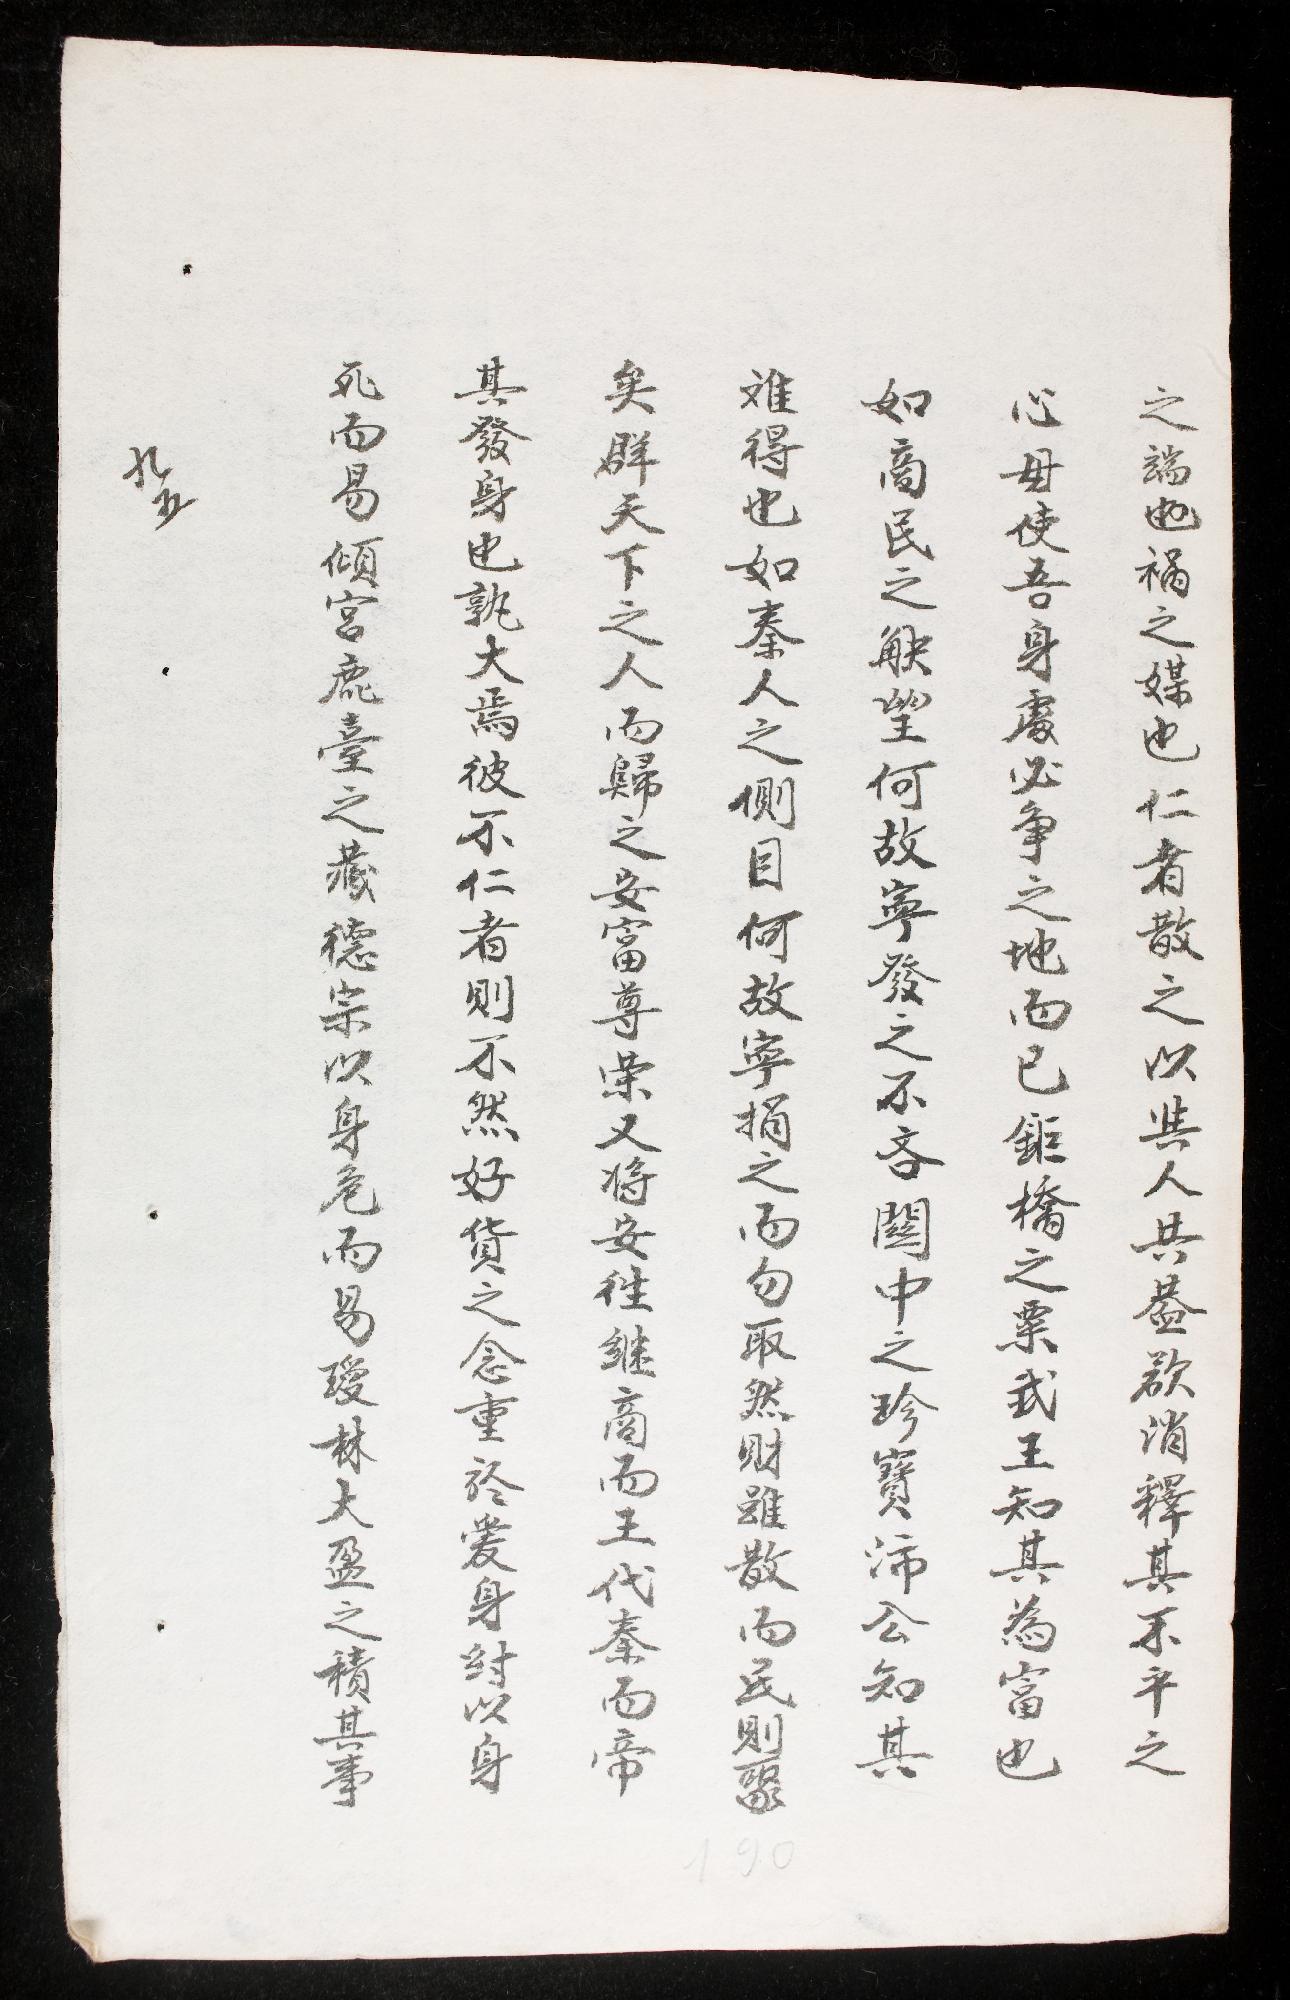 之端也禍之媒也仁者散之以與人共益欲消釋其不平之
心毋使吾身處必争之地而已鉅橋之粟武王知其為富也
如商民之觖望何故寧發之不吝關中之珍寶沛公知其
难得也如秦人之側目何故寧捐之而勿取然財雖散而民則聚
矣群天下之人而歸之安富尊荣又将安往继商而王代秦而帝
其發身也孰大焉彼不仁者則不然好貨之念重於爱身紂以身
死而易傾宫鹿臺之藏德宗以身危而易瓊林大盈之積其事
九五
190